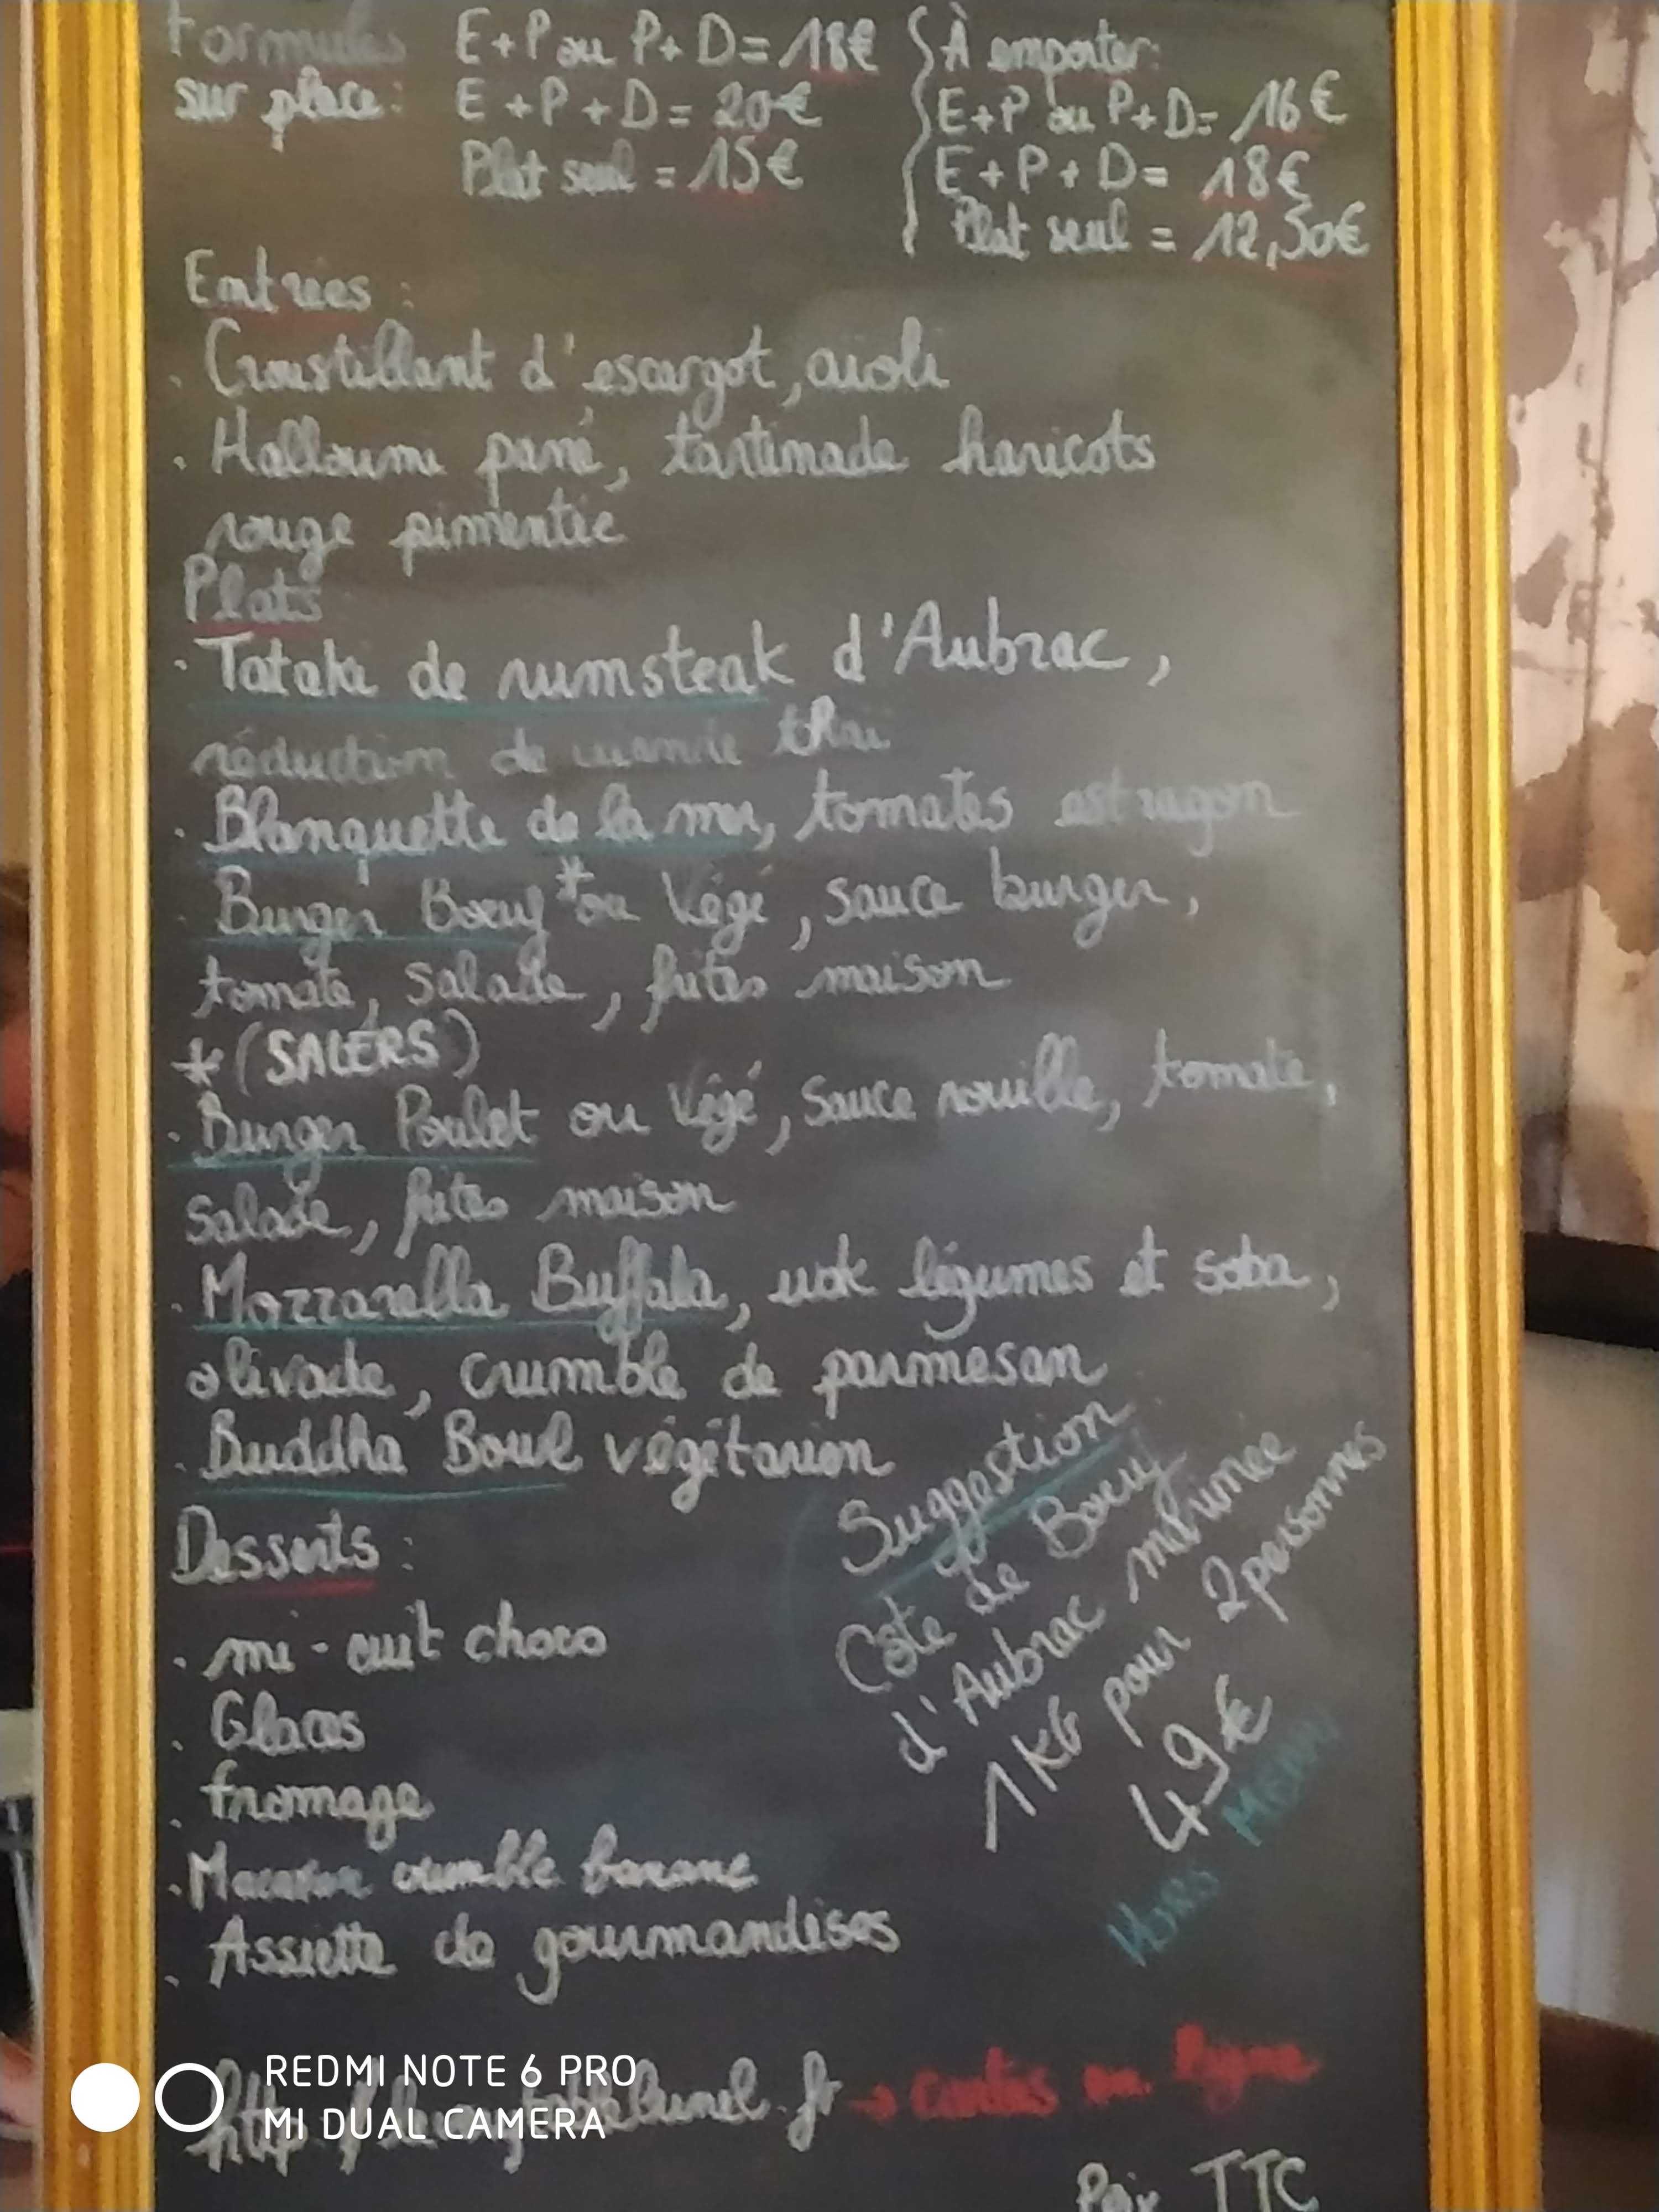 Formules E+P ou P+D = 18€
sur place : E + P + D = 20€
Plat seul = 15€
À emporter :
E+P ou P+D = 16€
E+P+D = 18€
Plat seul = 12,50€
Entrées :
. Croustillant d'escargot, aioli
. Halloumi pané, tartinade haricots
rouge pimentée
Plats
. Tataki de rumsteak d'Aubrac,
réduction de viande thai
. Blanquette de la mer, tomates estragon
. Burger Boeuf * ou Végé, sauce burger,
tomate, salade, frites maison
* (SALERS)
. Burger Poulet ou Végé, sauce rouille, tomate,
salade, frites maison
. Mozzarella Buffala, wok légumes et soba,
olivade, crumble de parmesan
. Buddha Bowl végétarien
Desserts :
. mi-cuit choco
. Glaces
. fromage
. Macaron crumble banane
. Assiette de gourmandises
Suggestion
Côte de Boeuf
d'Aubrac marinée
1KG pour 2 personnes
49€
HORS MENU
→ cartes en ligne
Prix TTC
REDMI NOTE 6 PRO
MI DUAL CAMERA